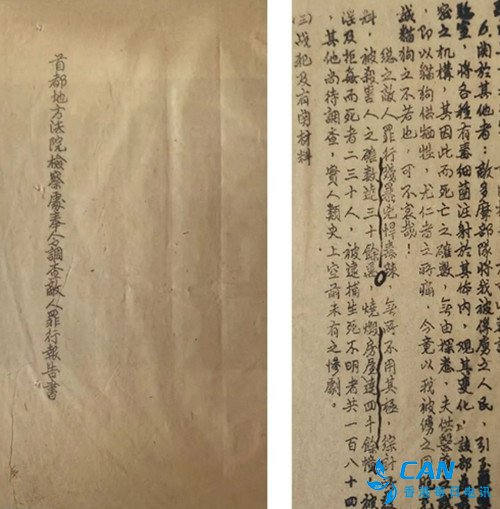 首都地方法院檢察處奉令調查敵人罪行報告書
6.關於其他者：敵多摩部隊將我被俘虜之人民，引至
驗室，將各種有毒細菌注射於其体內，观其变化，該部為最
密之机構，其因此而死亡之確數，無由探悉，夫供醫藥
，即以貓狗供牺牲，尤仁者之所痛，今竟以我被俘之同胞
誠貓狗之不若也，可不哀哉！
總之敵人罪行殘暴兇悍毒辣，無所不用其極，綜計
料，被殺害人之確数達三十餘萬，燒燬房屋達四千餘幢，被
淫及拒姦而死者二三十人，被逮捕生死不明者共一百八十四
，其他尚待調查，實人類史上空前未有之慘劇。
(三)战犯及有関材料
CAN
香港每日电讯